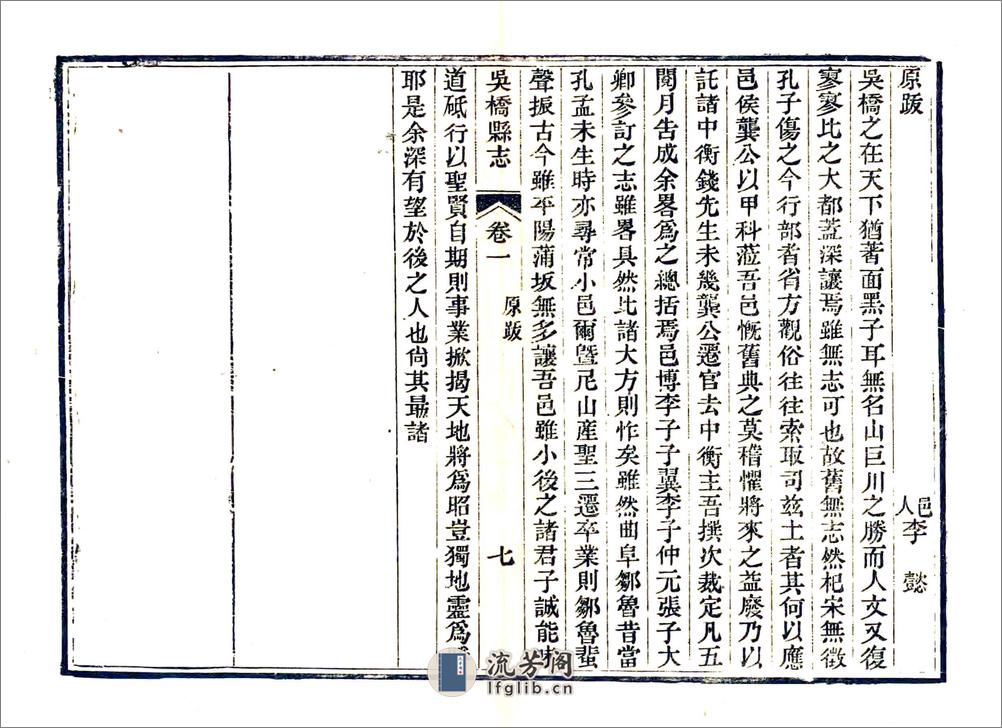 原跋
邑人李懿
吳橋之在天下猶著面黑子耳無名山巨川之勝而人文又復
寥寥比之大都蓋深讓焉雖無志可也故舊無志然杞宋無徵
孔子傷之今行部者省方觀俗往往索取司茲土者其何以應
邑侯龔公以甲科蒞吾邑慨舊典之莫稽懼將來之益廢乃以
託諸中衡錢先生未幾龔公遷官去中衡主吾撰次裁定凡五
閱月告成余畧為之總括焉邑博李子子翼李子仲元張子大
卿參訂之志雖畧具然比諸大方則怍矣雖然曲阜鄒魯昔當
孔孟未生時亦尋常小邑爾曁尼山產聖三遷卒業則鄒魯蜚
聲振古今雖平陽蒲坂無多讓吾邑雖小後之諸君子誠能
吳橋縣志
卷一
原跋
七
道砥行以聖賢自期則事業掀揭天地將為昭豈獨地靈為
耶是余深有望於後之人也尚其最諸
流芳阁
lfglib.cn